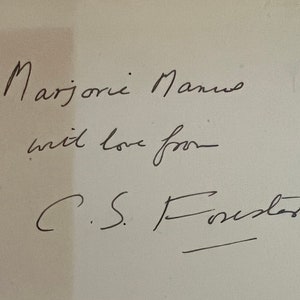 Marjorie Manus
with love from
C. S. Forester